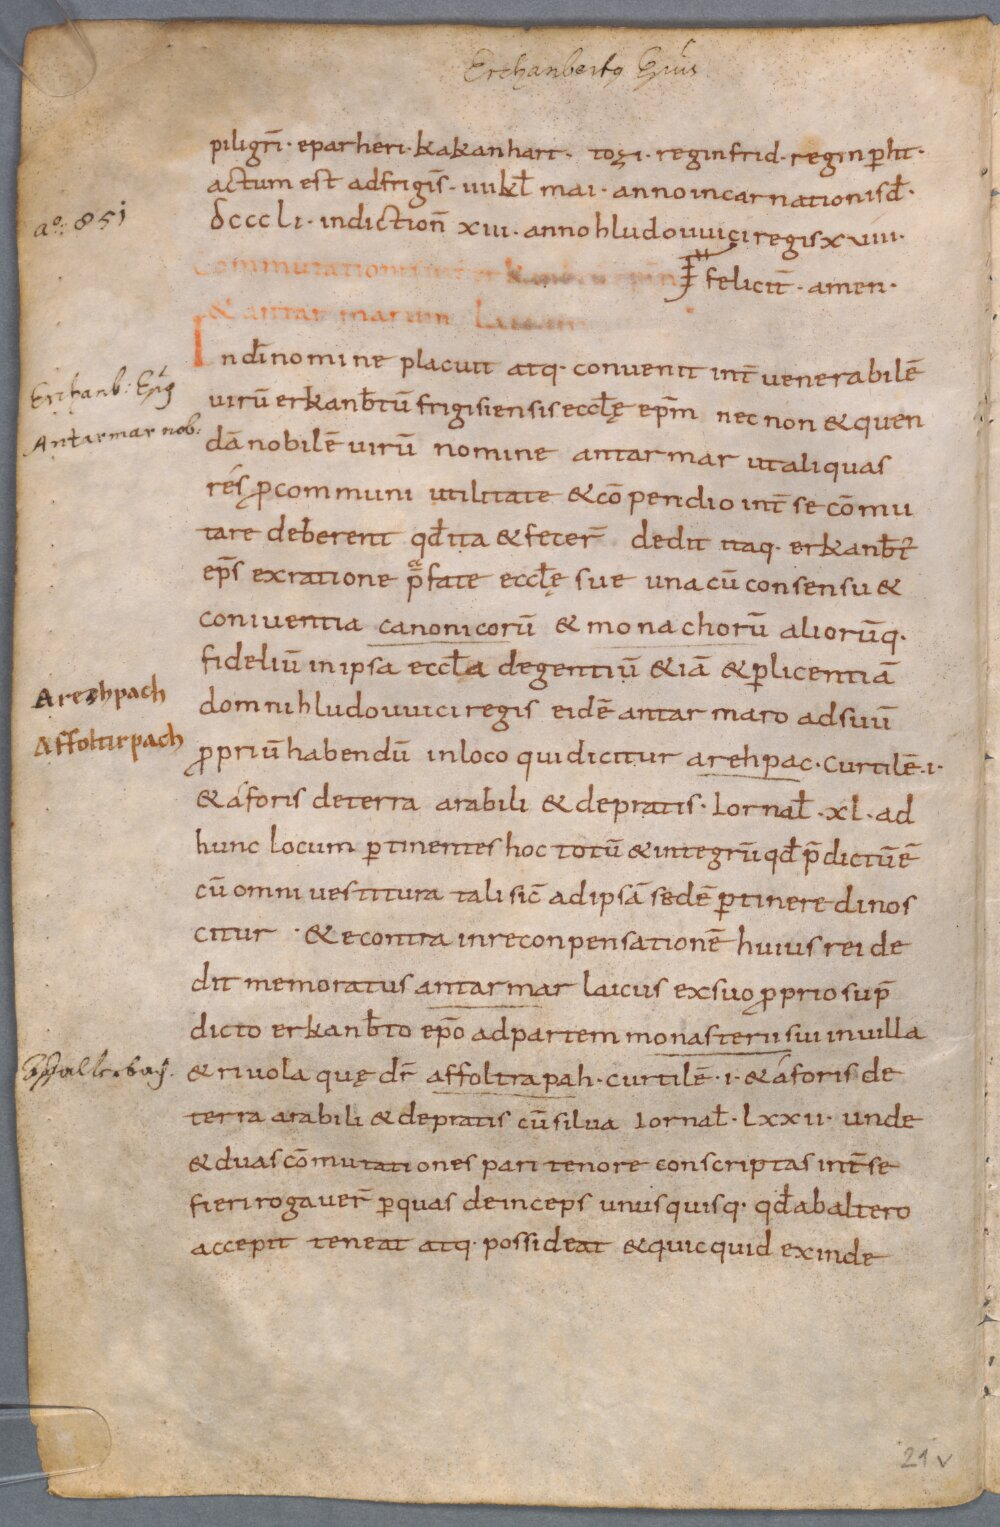 Erchanbertꝰ Ep̄us
piligrī · eparheri · kakanhart · tozi · reginfrid · reginp̱ht ·
actum est adfrigis̄ · uıkł mai · anno incarnationis dꝉ ·
a°: 851
dcccli · indiction̄ xiii · anno hludouuici regis xviii ·
felicit̄ · amen ·
Commutatio inter erkanbertum ep̄m
& antarmarum Laicum
Indī nomine placuit atq· conuenit int̄ uenerabilē
Erchanb: Ep̄s
uirū erkanb̄tū frigisiensis eccłę ep̄m nec non & quen
Antarmar nob:
dā nobilē uirū nomine antarmar ut aliquas
rés ꝓ communi utilitate & cōpendio int̄ se cōmu
tare deberent qđ ita & fecer̄ dedit itaq· erkanb̄t
ep̄s ex ratione p̄fate eccłę sue una cū consensu &
coniuentia canonicorū & monachorū aliorūq·
fideliū in ipsa eccła degentiū &iā & ꝑ licentiā
Arezhpach
domni hludouuici regis eidē antarmaro ad suū
Affoltirpach
ꝓpriū habendū in loco qui dicitur arehpac · curtilē · i ·
& áforis de terra arabili & de pratis · Iornał · xl · ad
hunc locum ꝑtinentes hoc totū & integrū qđ p̄dictū ē
cū omni uestitura tali sic̄ ad ipsā sedē ꝑtinere dinos
citur · & econtra in reconpensationē huius rei de
dit memoratus antarmar laicus ex suo ꝓprio sup̄
dicto erkanb̄to ep̄o ad partem monasterii sui in uilla
Affalterbach.
& riuola quę dr̄ affoltrapah · curtilē · i · & áforis de
terra arabili & de pratis cū silua Iornał · lxxii · unde
& duas cōmutationes pari tenore conscriptas int̄ se
fieri rogauer̄ ꝑ quas deinceps unusquisq· qđ ab altero
accepit teneat atq· possideat & quicquid exinde
21v